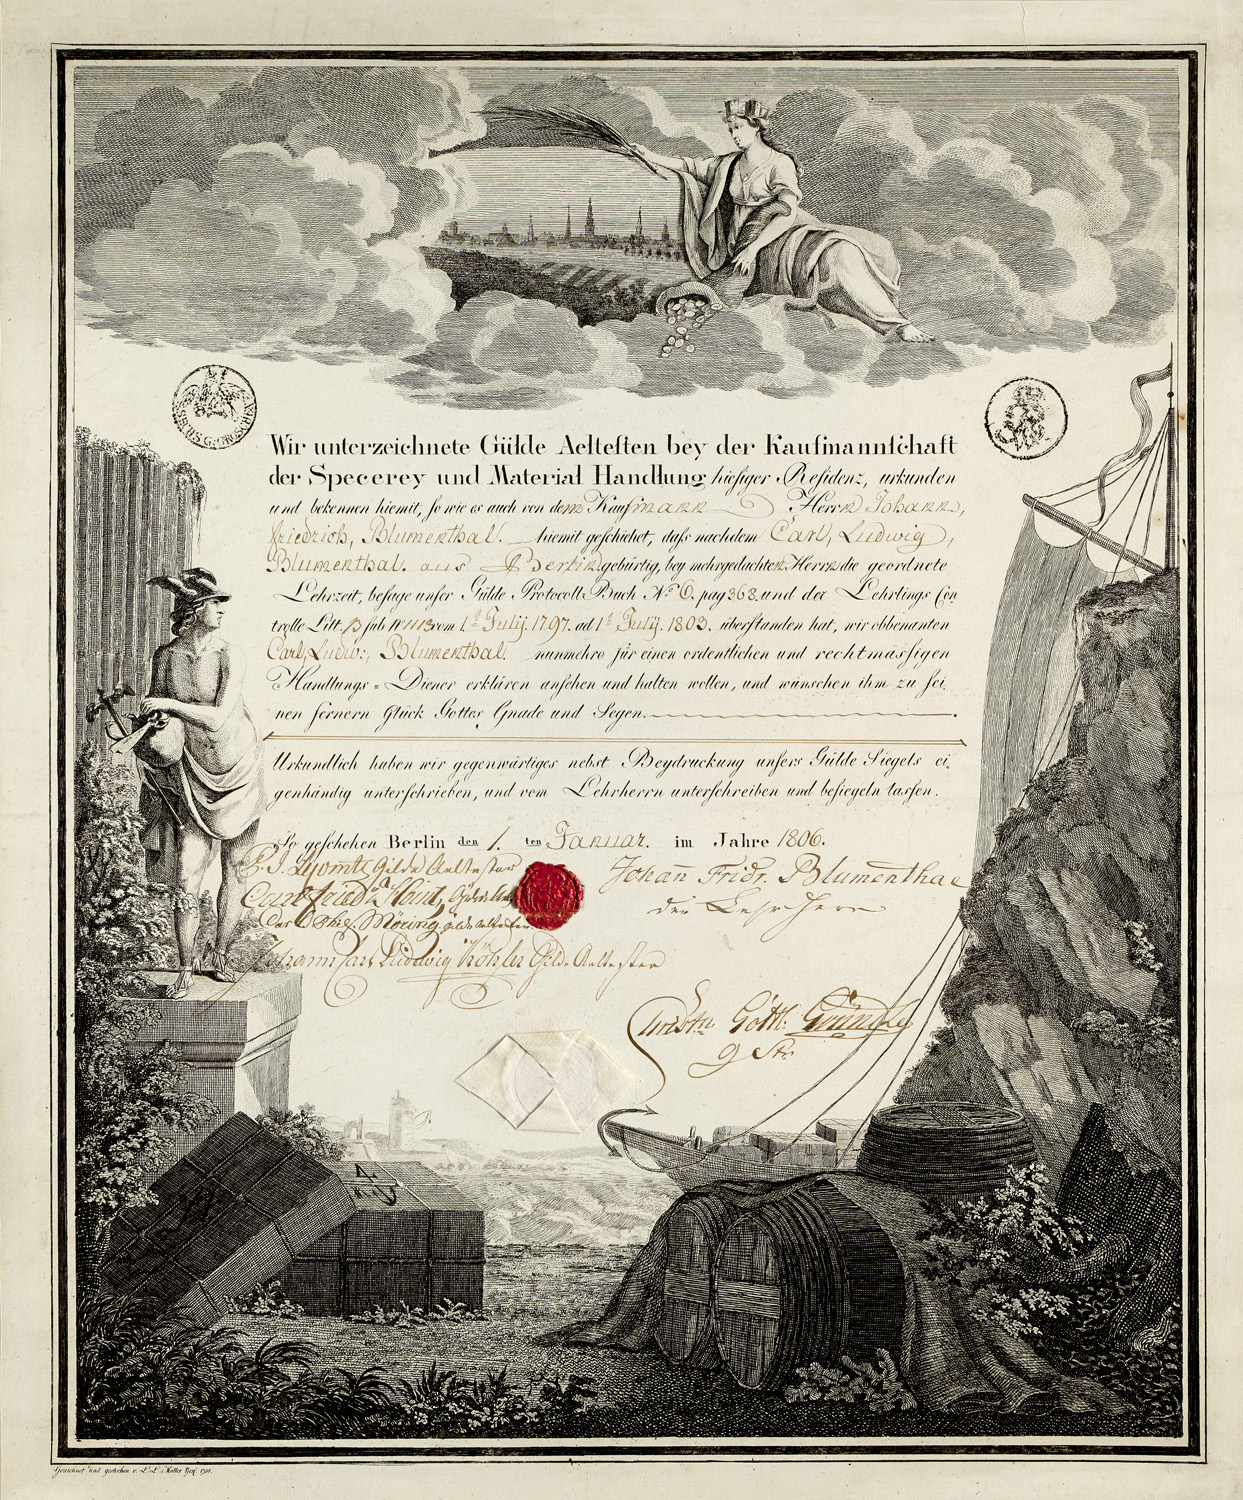 SECHS G: GROSCHEN
Wir unterzeichnete Gülde Aeltesten bey der Kaufmannſchaft
der Specerey und Material Handlung hieſiger Reſidenz, urkunden
und bekennen hiemit, ſo wie es auch von dem Kaufmann Herrn Johann,
Friedrich, Blumenthal. hiemit geſchiehet, daſs nachdem Carl, Ludwig,
Blumenthal. aus Berlin gebürtig, bey mehrgedachten Herrn die geordnete
Lehrzeit, beſage unſer Gülde Protocoll-Buch No 6. pag 368. und der Lehrlings Con,
trolle Litt. B ſub No 1113 vom 1t July. 1797. ad 1t July. 1803. überſtanden hat, wir obbenanten
Carl, Ludw:, Blumenthal. nunmehro für einen ordentlichen und rechtmäſsigen
Handlungs=Diener erklären anſehen und halten wollen, und wünſchen ihm zu ſei,
nen fernern Glück Gottes Gnade und Segen.
Urkundlich haben wir gegenwärtiges nebst Beydruckung unſers Gülde Siegels ei,
genhändig unterſchrieben, und vom Lehrherrn unterſchreiben und beſiegeln laſsen.
So geſchehen Berlin den 1. ten Januar. im Jahre 1806.
Gilde Aeltester
Johann Fridr. Blumenthal
Carl Gülde
der Lehr Herr
Möring gilde Aeltester
Johann Carl Ludwig Köhler Gilde Aeltester
Christn. Gottl.
Gezeichnet und gestochen v.